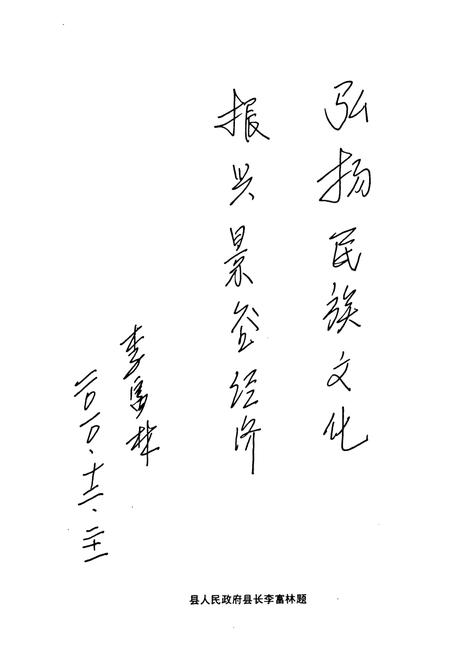 弘扬民族文化
振兴景谷经济
李富林
二〇一〇、十二、二十一
县人民政府县长李富林题